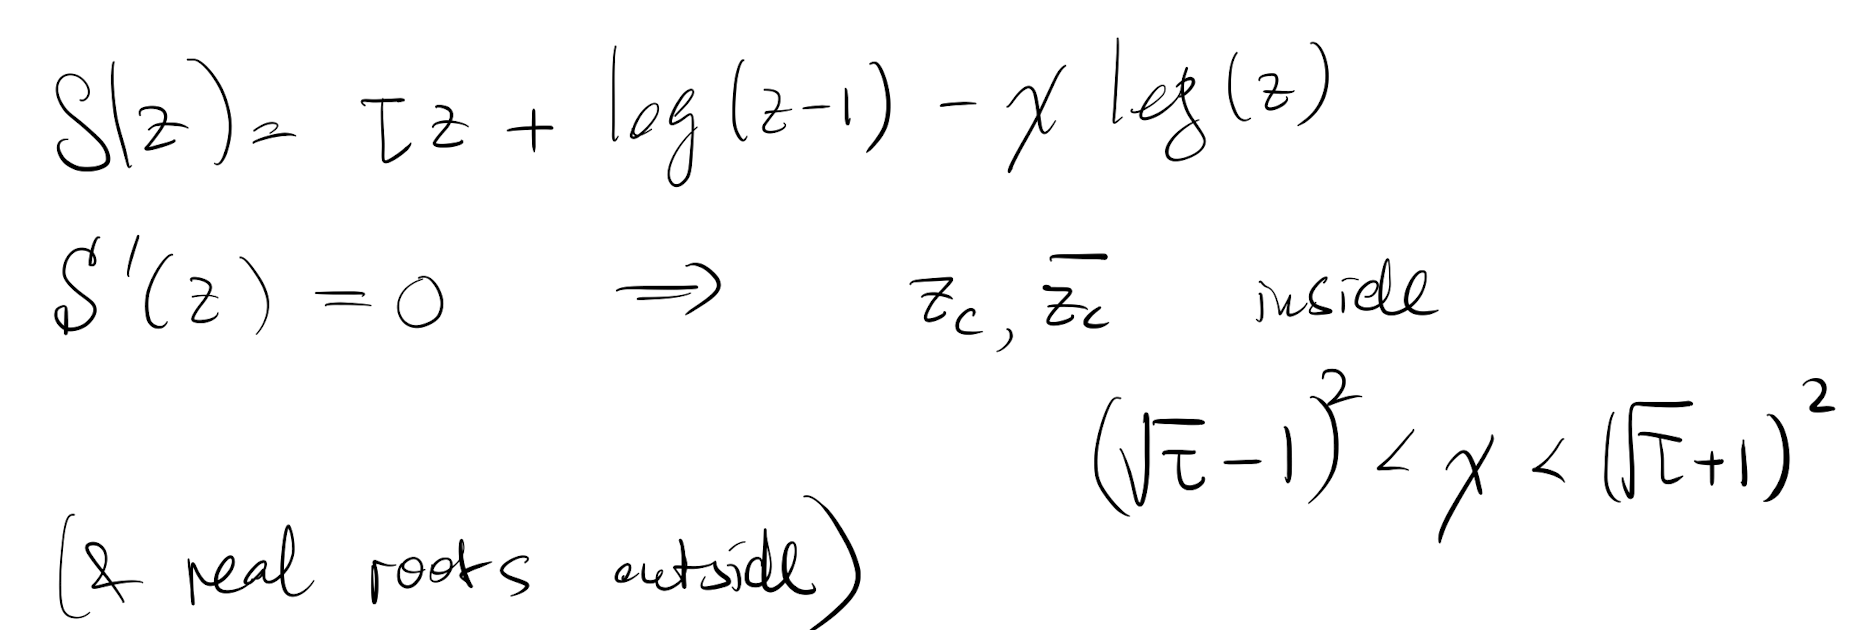 S(z) = τz + log(z-1) - χ log(z)
S'(z) = 0 ⟹ z_c, \overline{z_c} inside
(√τ-1)² < χ < (√τ+1)²
(& real roots outside)